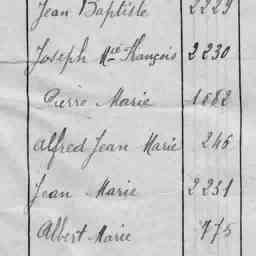 Jean Baptiste 2229
Joseph Mie François 2230
Pierre Marie 1682
Alfred Jean Marie 246
Jean Marie 2231
Albert Marie 775